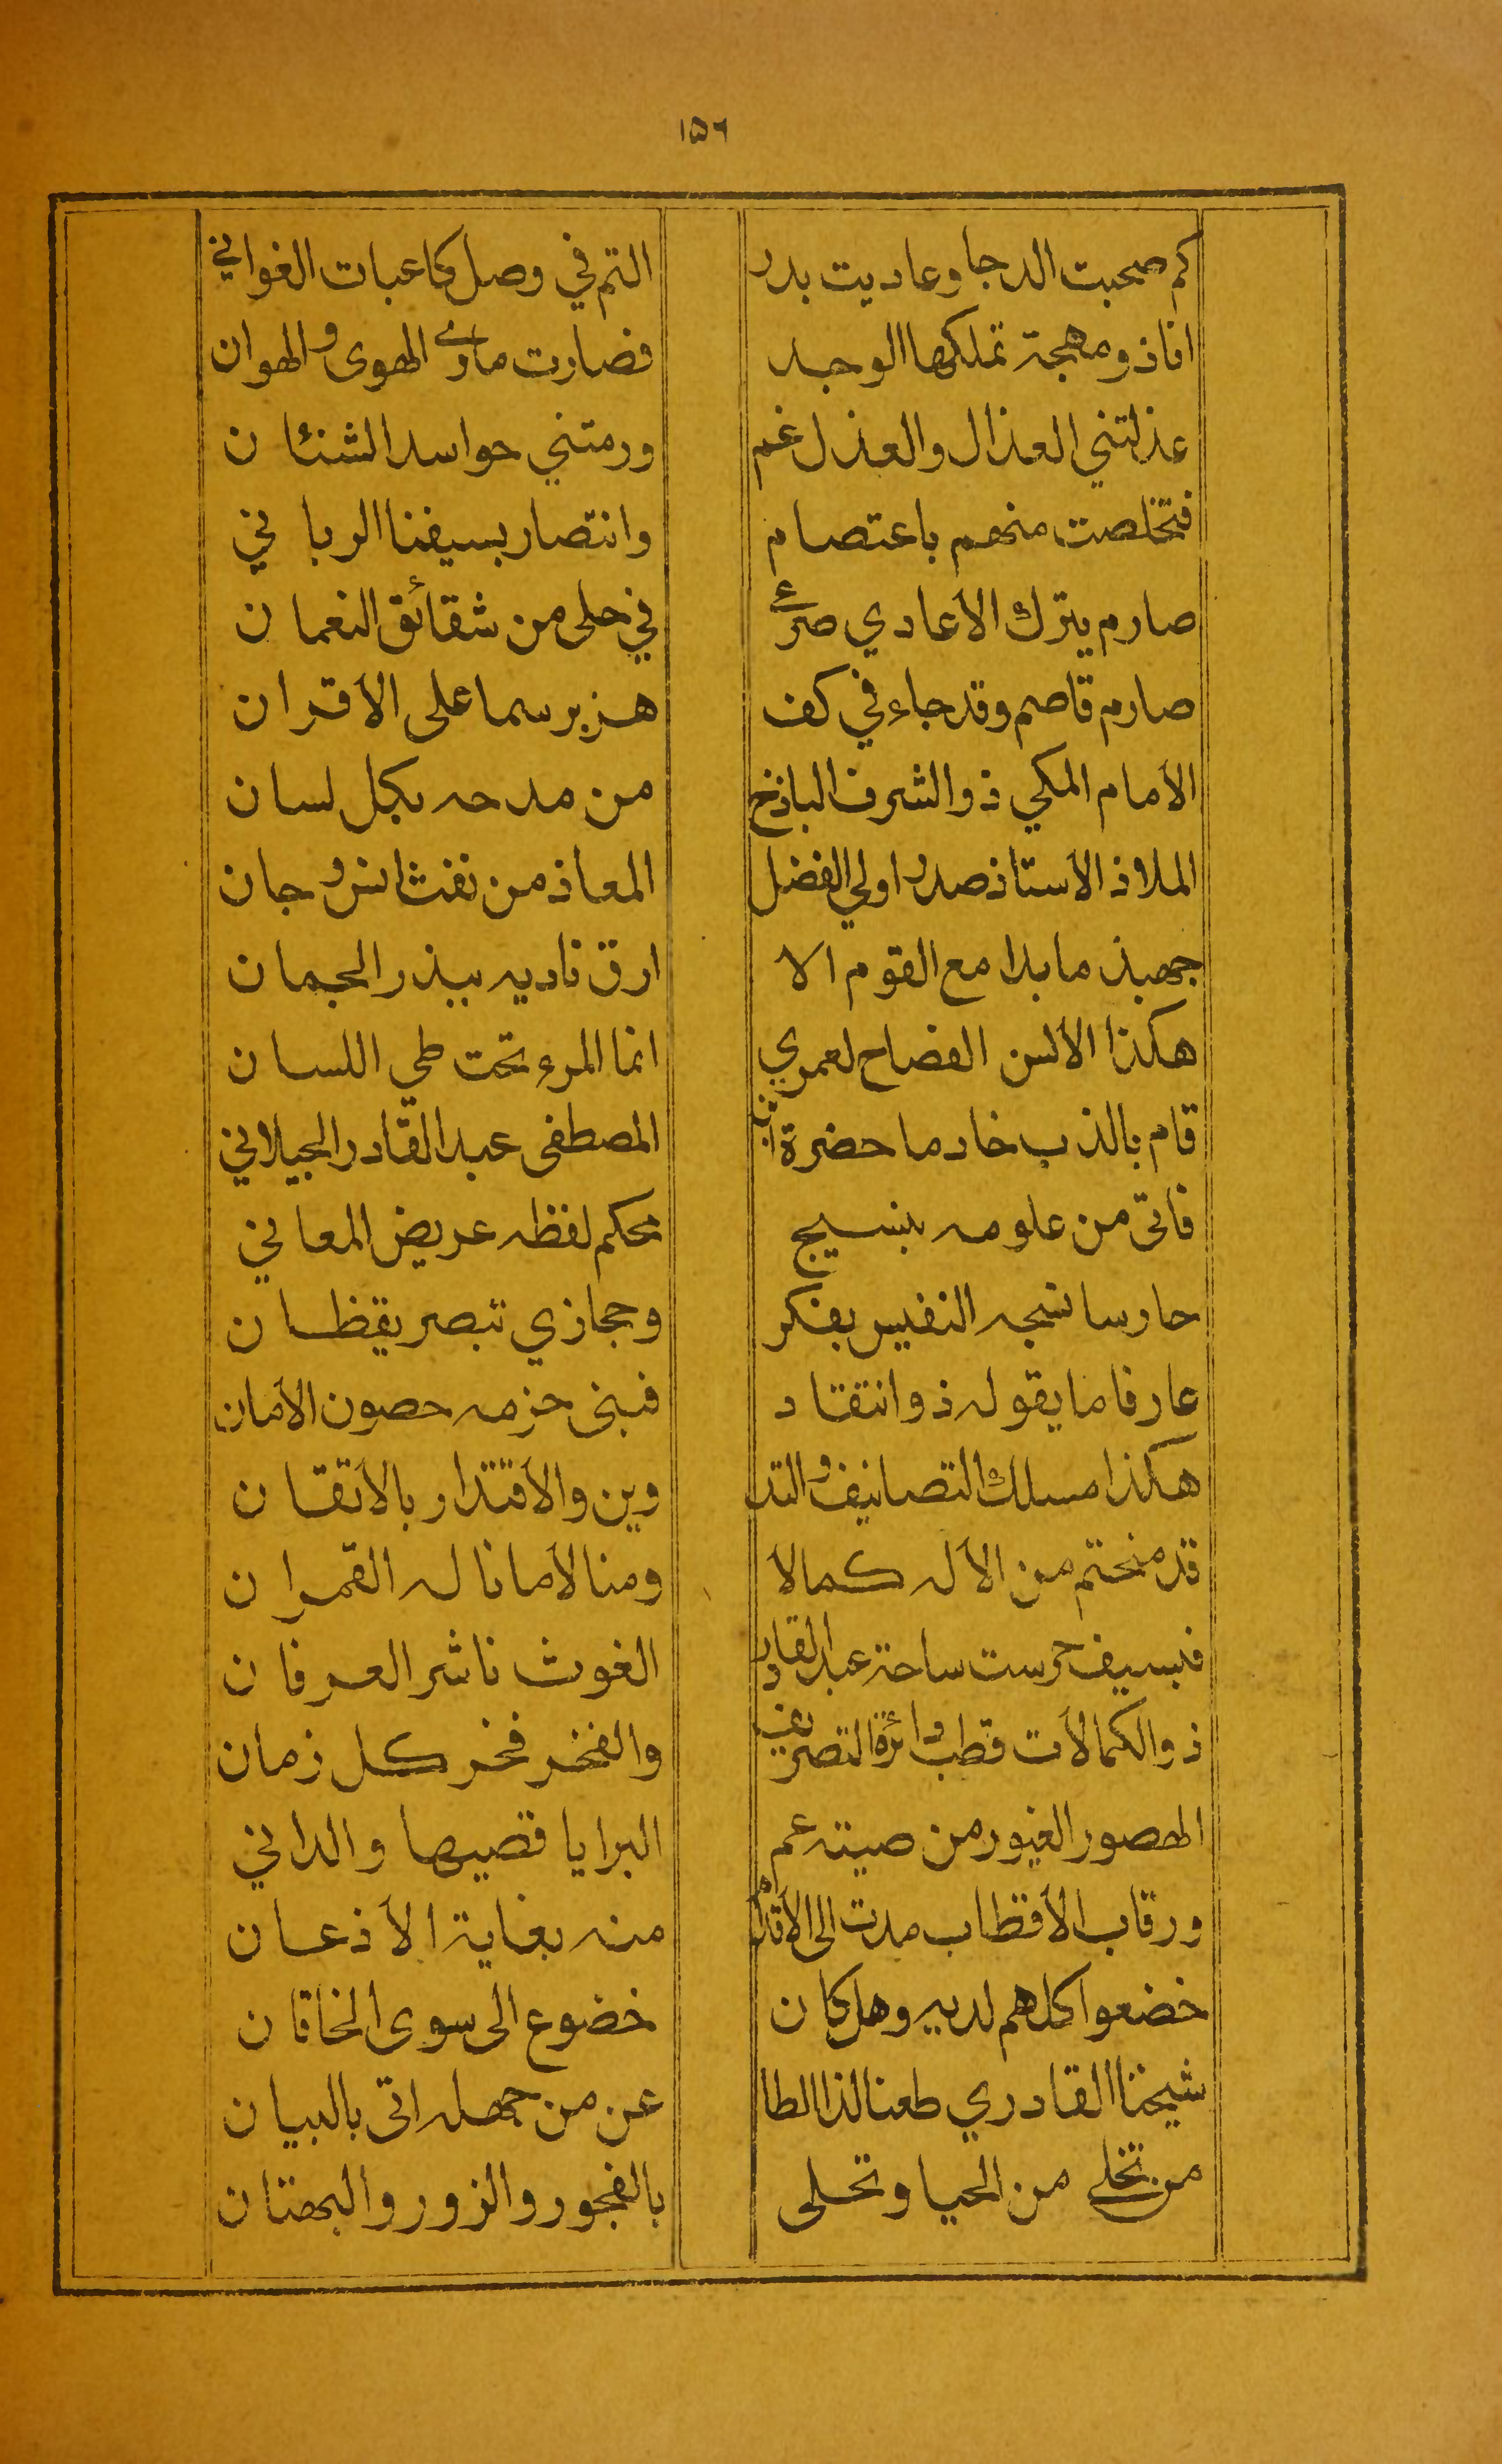 ١٥٦
كم صحبت الدجا وعاديت بدر التم في وصل كاعبات الغواني
انا ذو مهجة تملكها الوجد فصارت مأوى الهوى والهوان
عذلتني العذال والعذل غم ورمتني حواسد الشنئان
فتخلصت منهم باعتصام وانتصار بسيفنا الرباني
صارم يترك الأعادي صرعى في حلى من شقائق النعمان
صارم قاصم وقد جاء في كف هزبر سما على الأقران
الأمام المكي ذو الشرف الباذخ من مدحه بكل لسان
الملاذ الأستاذ صدر اولي الفضل المعاذ من نفث انس وجان
جهبذ ما بدا مع القوم الا ارق ناديه ببذر الجمان
هكذا الألسن الفصاح لعمري انما المرء تحت طي اللسان
قام بالذب خادما حضرة ابن المصطفى عبد القادر الجيلاني
فاتى من علومه بنسيج محكم لفظه عريض المعاني
حارسا نسجه النفيس بفكر وحجازي تبصر يقظان
عارفا ما يقوله ذو انتقاد فبنى حزمه حصون الأمان
هكذا مسلك التصانيف والتد وين والأقتدار بالأتقان
قد منحتم من الأله كمالا ومنالا ما ناله القمران
فبسيف حرست ساحة عبد القادر الغوث ناشر العرفان
ذو الكمالات قطب دائرة التصريف والفخر فخر كل زمان
الهصور الغيور من صيته عم البرايا قصيها والداني
ورقاب الأقطاب مدت الى الأقدام منه بغاية الأذعان
خضعوا كلهم لديه وهل كان خضوع الى سوى الخاقان
شيخنا القادري طعنا لذا الطا عن من جهله اتى بالبيان
من تخلى من الحيا وتحلى بالفجور والزور والبهتان